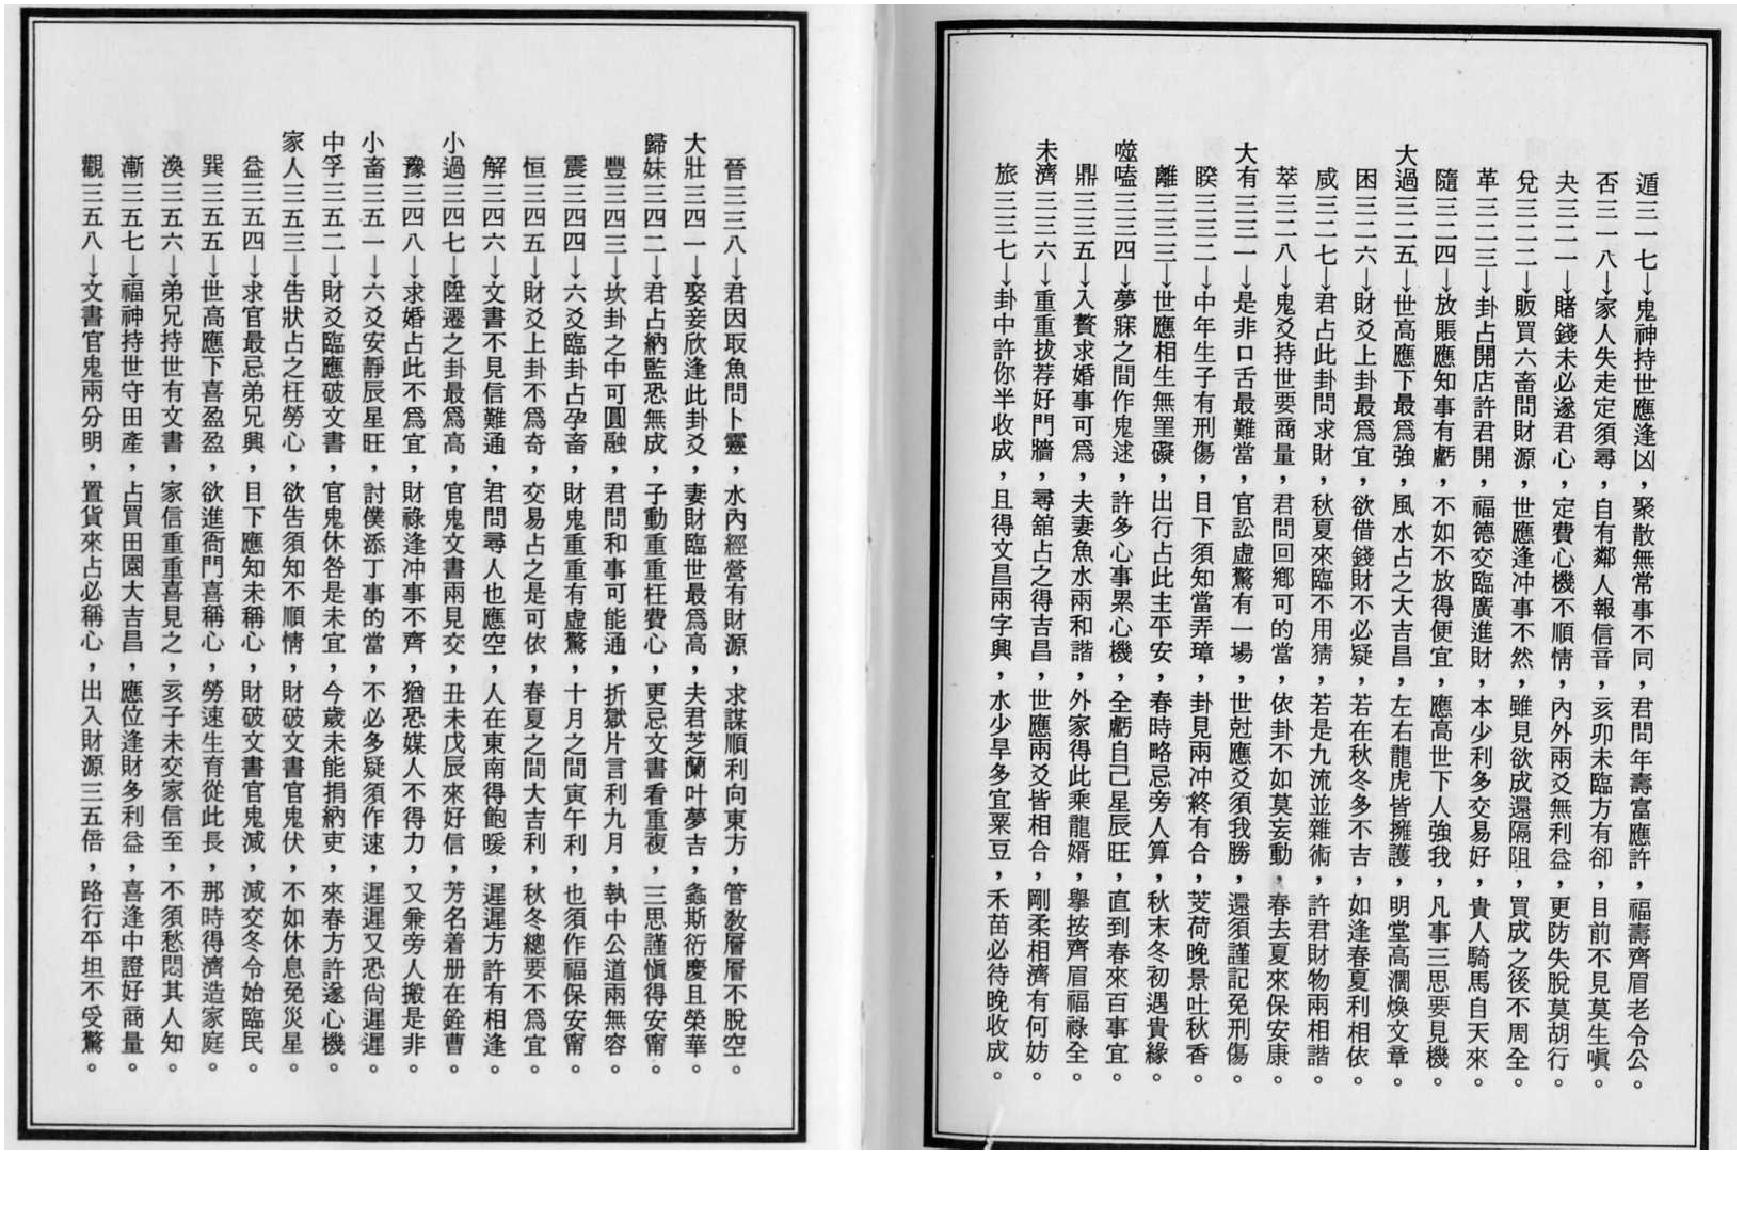 遁三一七→鬼神持世應逢凶，聚散無常事不同，君問年壽富應許，福壽齊眉老令公。
否三一八→家人失走定須尋，自有鄰人報信音，亥卯未臨方有卻，目前不見莫生嗔。
夬三二一→賭錢未必遂君心，定費心機不順情，內外兩爻無利益，更防失脫莫胡行。
兌三二二→販買六畜問財源，世應逢冲事不然，雖見欲成還隔阻，買成之後不周全。
革三二三→卦占開店許君開，福德交臨廣進財，本少利多交易好，貴人騎馬自天來。
隨三二四→放賬應知事有虧，不如不放得便宜，應高世下人強我，凡事三思要見機。
大過三二五→世高應下最爲強，風水占之大吉昌，左右龍虎皆擁護，明堂高濶煥文章。
困三二六→財爻上卦最爲宜，欲借錢財不必疑，若在秋冬多不吉，如逢春夏利相依。
咸三二七→君占此卦問求財，秋夏來臨不用猜，若是九流並雜術，許君財物兩相諧。
萃三二八→鬼爻持世要商量，君問回鄉可的當，依卦不如莫妄動，春去夏來保安康。
大有三三一→是非口舌最難當，官訟虛驚有一場，世尅應爻須我勝，還須謹記免刑傷。
睽三三二→中年生子有刑傷，目下須知當弄璋，卦見兩冲終有合，芰荷晚景吐秋香。
離三三三→世應相生無罣礙，出行占此主平安，春時略忌旁人算，秋末冬初遇貴緣。
噬嗑三三四→夢寐之間作鬼逑，許多心事累心機，全虧自己星辰旺，直到春來百事宜。
鼎三三五→入贅求婚事可爲，夫妻魚水兩和諧，外家得此乘龍婿，舉按齊眉福祿全。
未濟三三六→重重拔荐好門牆，尋舘占之得吉昌，世應兩爻皆相合，剛柔相濟有何妨。
旅三三七→卦中許你半收成，且得文昌兩字興，水少旱多宜粟豆，禾苗必待晚收成。
晉三三八→君因取魚問卜靈，水內經營有財源，求謀順利向東方，管敎層層不脫空。
大壯三四一→娶妾欣逢此卦爻，妻財臨世最爲高，夫君芝蘭叶夢吉，螽斯衍慶且榮華。
歸妹三四二→君占納監恐無成，子動重重枉費心，更忌文書看重複，三思謹愼得安甯。
豐三四三→坎卦之中可圓融，君問和事可能通，折獄片言利九月，執中公道兩無容。
震三四四→六爻臨卦占孕畜，財鬼重重有虛驚，十月之間寅午利，也須作福保安甯。
恒三四五→財爻上卦不爲奇，交易占之是可依，春夏之間大吉利，秋冬總要不爲宜。
解三四六→文書不見信難通，君問尋人也應空，人在東南得飽暖，遲遲方許有相逢。
小過三四七→陞遷之卦最爲高，官鬼文書兩見交，丑未戊辰來好信，芳名着册在銓曹。
豫三四八→求婚占此不爲宜，財祿逢冲事不齊，猶恐媒人不得力，又兼旁人搬是非。
小畜三五一→六爻安靜辰星旺，討僕添丁事的當，不必多疑須作速，遲遲又恐尙遲遲。
中孚三五二→財爻臨應破文書，官鬼休咎是未宜，今歲未能捐納吏，來春方許遂心機。
家人三五三→告狀占之枉勞心，欲告須知不順情，財破文書官鬼伏，不如休息免災星。
益三五四→求官最忌弟兄興，目下應知未稱心，財破文書官鬼減，減交冬令始臨民。
巽三五五→世高應下喜盈盈，欲進衙門喜稱心，勞速生育從此長，那時得濟造家庭。
渙三五六→弟兄持世有文書，家信重重喜見之，亥子未交家信至，不須愁悶其人知。
漸三五七→福神持世守田產，占買田園大吉昌，應位逢財多利益，喜逢中證好商量。
觀三五八→文書官鬼兩分明，置貨來占必稱心，出入財源三五倍，路行平坦不受驚。